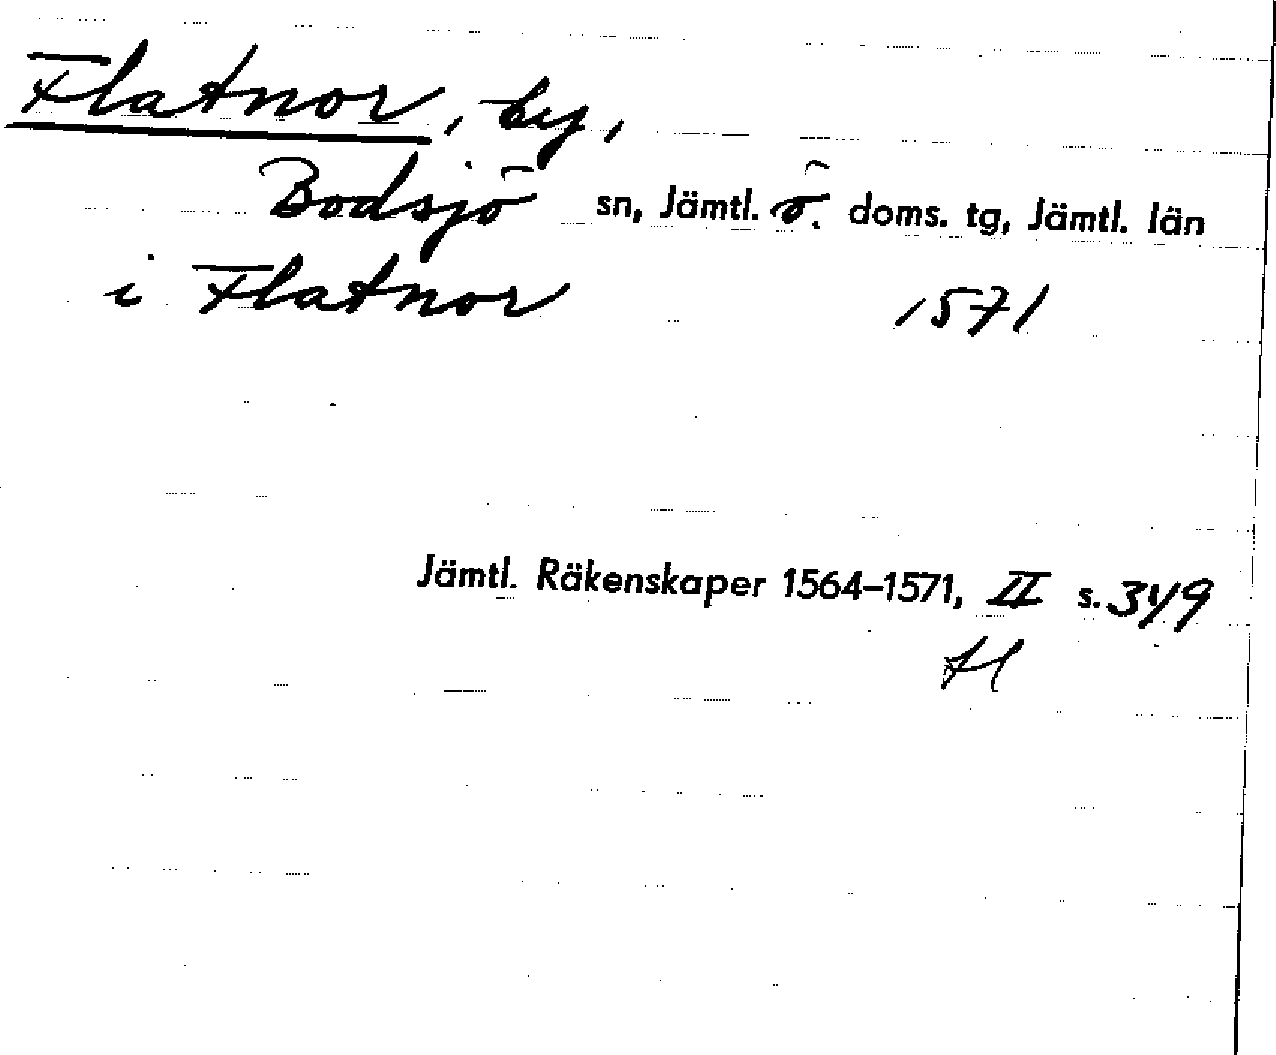 Flatnor, by,
Bodsjö sn, Jämtl. ö. doms. tg, Jämtl. län
i Flatnor 1571
Jämtl. Räkenskaper 1564–1571, II s. 349
H